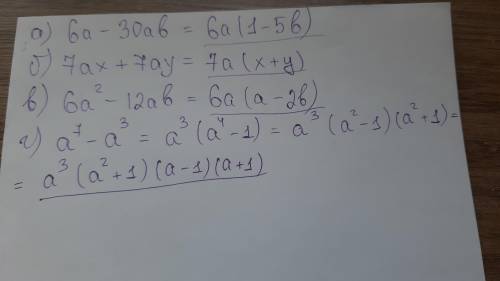 а) 6a - 30ab = 6a(1-5b)
б) 7ax + 7ay = 7a(x+y)
в) 6a² - 12ab = 6a(a-2b)
г) a⁷ - a³ = a³(a⁴-1) = a³(a²-1)(a²+1) =
= a³(a²+1)(a-1)(a+1)